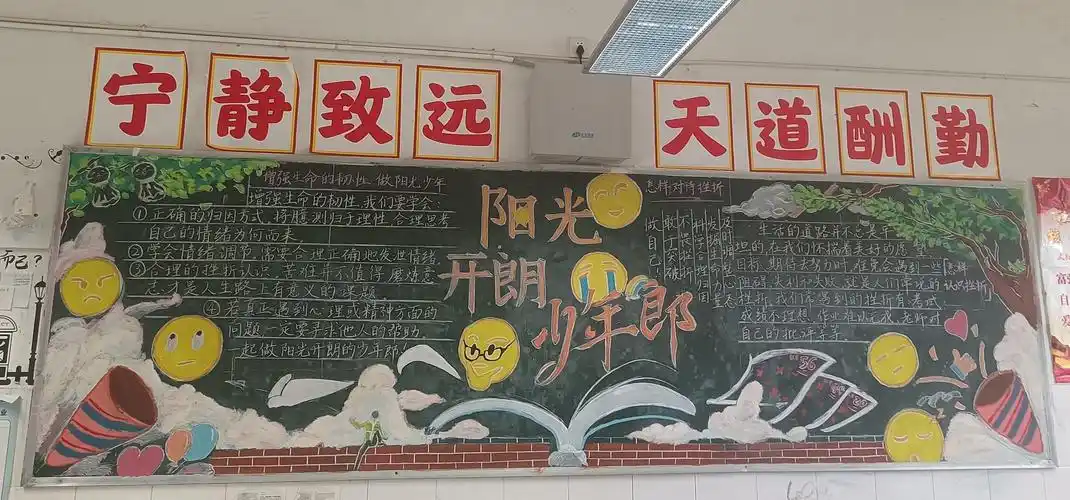 宁静致远
天道酬勤
增强生命的韧性 做阳光少年
增强生命的韧性,我们要学会:
①正确的归因方式,将臆测归于理性,合理思考
自己的情绪为何而来
②学会情绪调节,需要合理正确地发泄情绪
③合理的挫折认识,苦难并不值得,磨炼意
志才是人生路上有意义的课题
④若真遇到心理或精神方面的
问题一定要寻求他人的帮助
一起做阳光开朗的少年郎!
阳光
开朗
少年郎
怎样对待挫折
生活的道路并不总是平
坦的,在我们怀揣着美好的愿望
目标,期待去努力时,难免会遇到一些
阻碍,失利
这是人们常见的
挫折,我们常遇到的挫折有考试
成绩不理想,作业难以完成,老师对
自己的批评等等
怎样
认识挫折
而己?